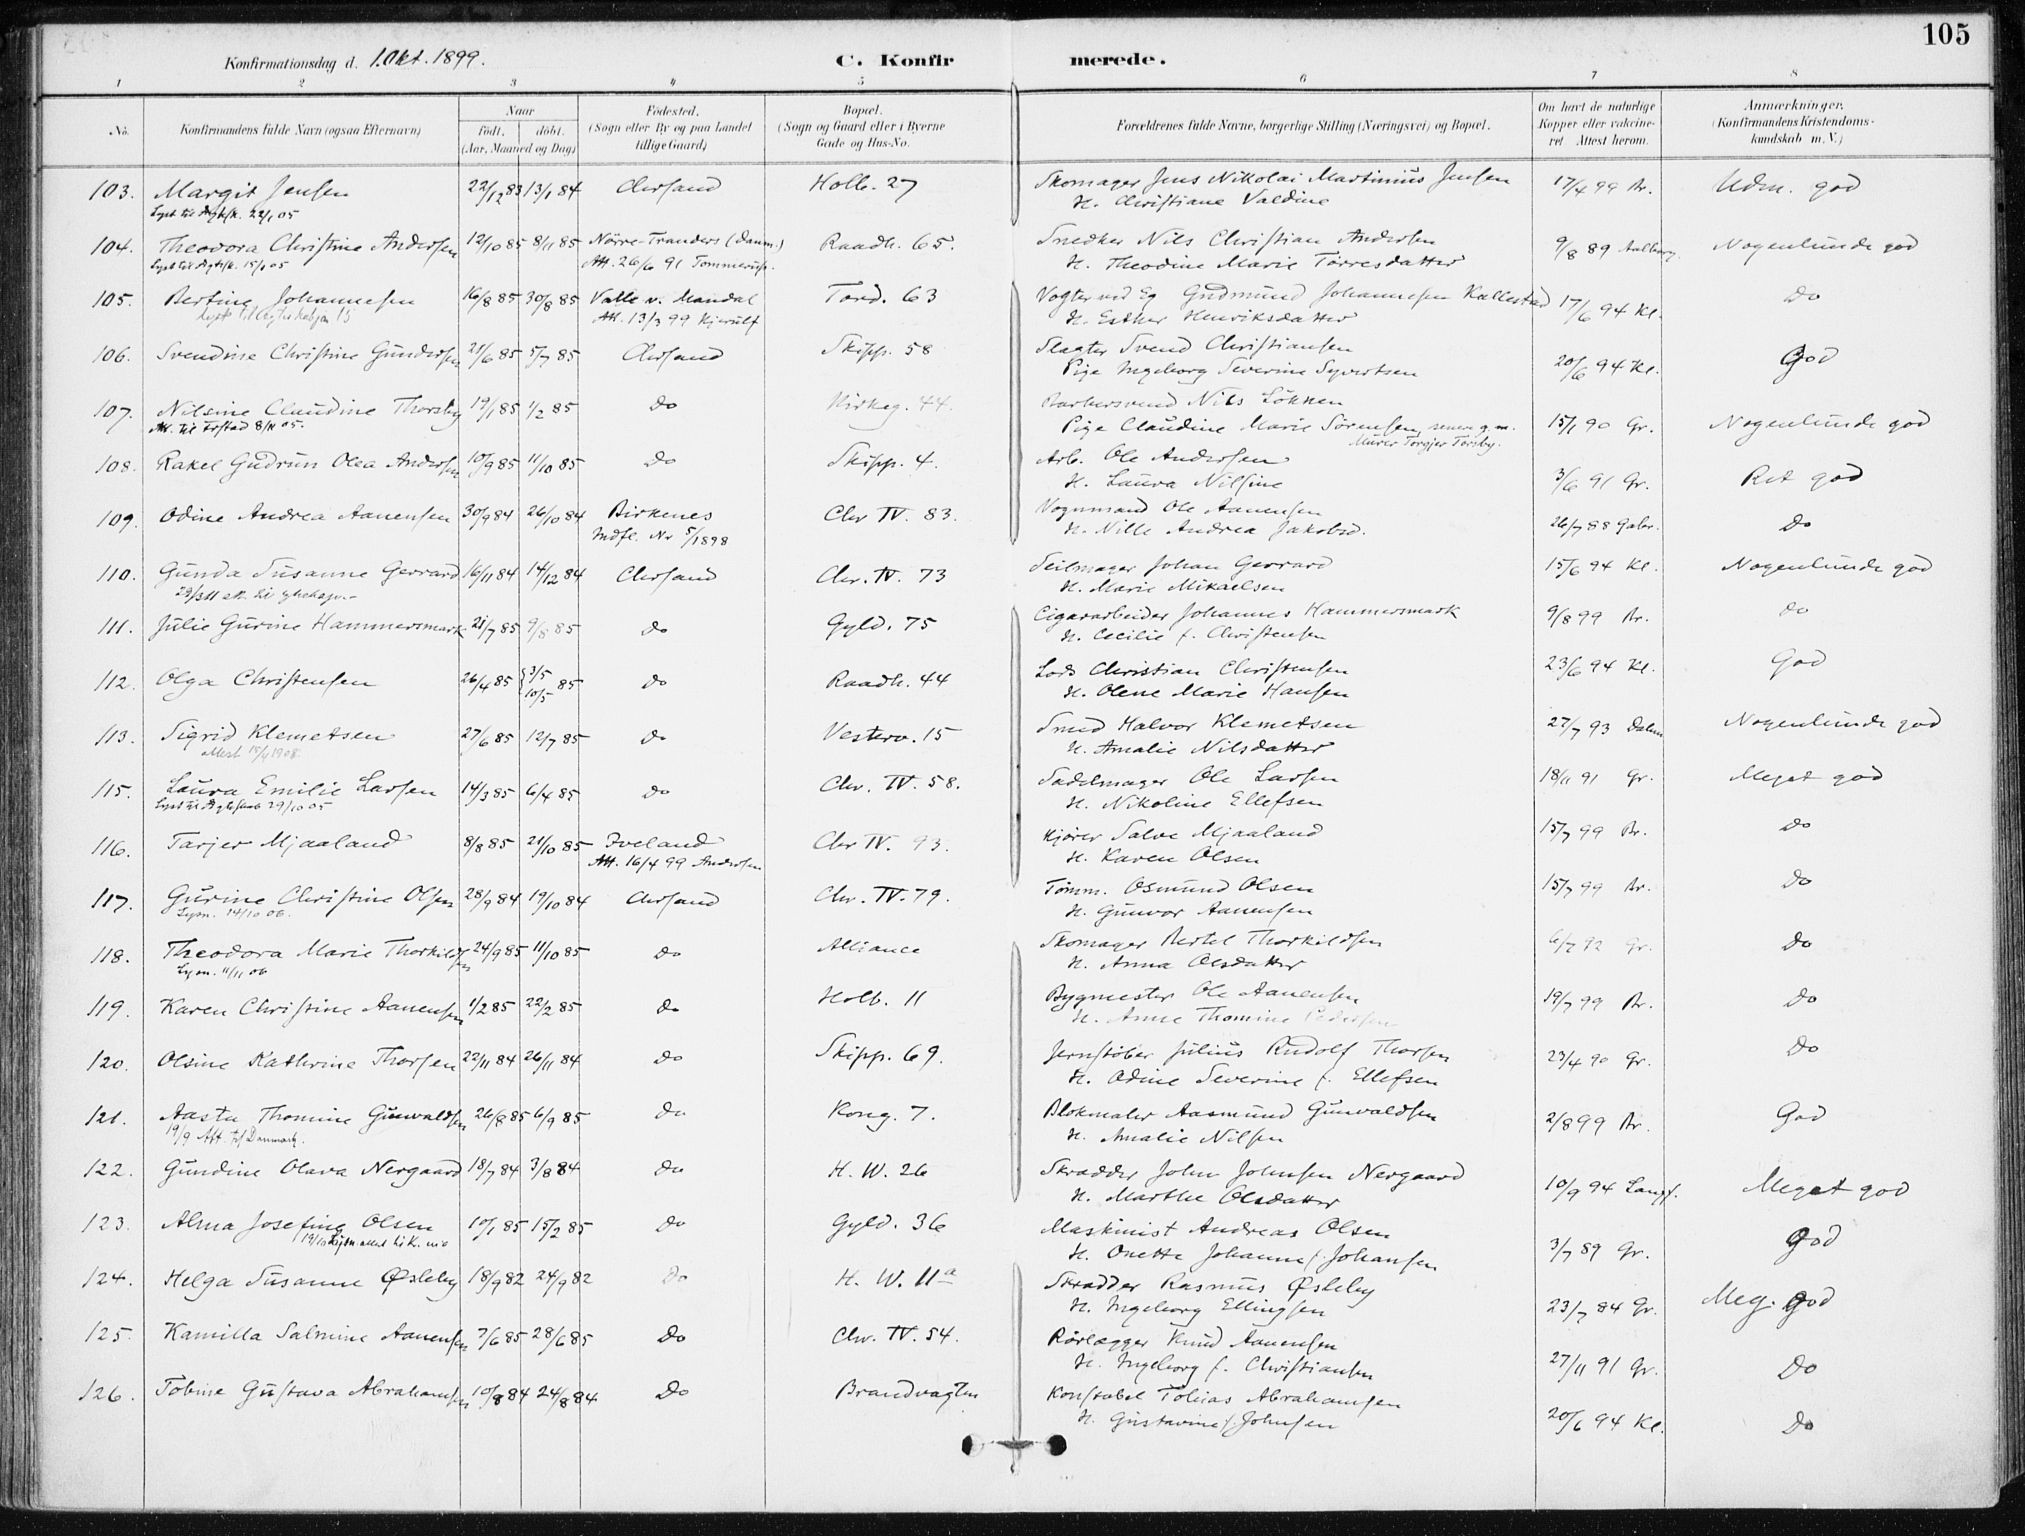 105
Konfirmationsdag d. 1. Okt. 1899.
C. Konfirmerede.
1 2 3 4 5 6 7 8
No.
Konfirmandens fulde Navn (ogsaa Efternavn)
Naar
födt. döbt.
(Aar, Maaned og Dag)
Födested.
(Sogn eller By og paa Landet
tillige Gaard)
Bopæl.
(Sogn og Gaard eller i Byerne
Gade og Hus-No.
Forældrenes fulde Navne, borgerlige Stilling (Næringsvei) og Bopæl.
Om havt de naturlige
Kopper eller vakcine-
ret. Attest herom.
Anmærkninger.
(Konfirmandens Kristendoms-
kundskab m. V.)
103. Margit Jensen 22/12 83 13/1 84 Chrsand Holb. 27 Skomager Jens Nikolai Martinius Jensen 17/4 99 Br. Udm. god
22/1 05 H. Christiane Valdine
104. Theodora Christine Andersen 12/10 85 8/11 85 Nörre-Tranders (Danm.) Raadh. 65. Snedker Nils Christian Andersen 9/8 89 Aalborg. Nogenlunde god
15/1 05 Att. 26/6 91 Tommerup. H. Theodine Marie Torresdatter
105. Bertine Johannesen 16/8 85 30/8 85 Valle v. Mandal Tord. 63 Vogter ved Eg Gudmund Johannesen Kallestad 17/6 94 Kl. Do
Att. 13/3 99 Kjerulf H. Esther Henriksdatter
106. Svendine Christine Gundersen 21/6 85 5/7 85 Chrsand Skipp. 58 Slagter Svend Christiansen 20/6 94 Kl. God
Pige Ingeborg Severine Syvertsen
107. Nilsine Claudine Thorsby 19/1 85 1/2 85 Do Kirkeg. 44. Barbersvend Nils Lökken 15/1 90 Gr. Nogenlunde god
8/11 05. Pige Claudine Marie Sörensen, senere g.m.
Murer Torgjer Torsby.
108. Rakel Gudrun Olea Andersen 10/9 85 11/10 85 Do Skipp. 4. Arb. Ole Andersen 3/6 91 Gr. Ret god
H. Laura Nilsine
109. Odine Andrea Aanensen 30/9 84 26/10 84 Birkenes Chr IV. 83. Vognmand Ole Aanensen 26/7 88 Gabr. Do
Indfl. No 5/1898 H. Nille Andrea Jakobsd.
110. Gunda Susanne Gerrard 16/11 84 14/12 84 Chrsand Chr. IV. 73 Seilmager Johan Gerrard 15/6 94 Kl. Nogenlunde god
H. Marie Mikaelsen
111. Julie Gurine Hammersmark 21/7 85 9/8 85 do Gyld. 75 Cigararbeider Johannes Hammersmark 9/8 99 Br. do
H. Cecilie f. Christensen
112. Olga Christensen 26/4 85 {3/5 10/5 85 do Raadh. 44 Lods Christian Christensen 23/6 94 Kl. God
H. Olene Marie Hansen
113. Sigrid Klemetsen 27/6 85 12/7 85 do Vesterv. 15 Smed Halvor Klemetsen 27/7 93 Dalen Nogenlunde god
H. Amalie Nilsdatter
115. Laura Emilie Larsen 14/3 85 6/4 85 do Chr. IV. 58. Sadelmager Ole Larsen 18/11 91 Gr. Meget god
29/10 05 H. Nikoline Ellefsen
116. Tarjer Mjaaland 8/8 85 21/10 85 Iveland Chr IV. 93. Kjörer Salve Mjaaland 15/7 99 Br. do
Att. 16/4 99 Andersen H. Karen Olsen
117. Gurine Christine Olsen 28/9 84 19/10 84 Chrsand Chr. IV. 79. Tömm. Osmund Olsen 15/7 99 Br. Do
Lysn. 14/10 06. H. Gunvor Aanensen
118. Theodora Marie Thorkildsen 24/9 85 11/10 85 do Alliance Skomager Bertel Thorkildsen 6/7 92 Gr. Do
Lysn. 11/11 06 H. Anna Olsdatter
119. Karen Christine Aanensen 1/2 85 22/2 85 do Holb. 11 Bygmester Ole Aanensen 19/7 99 Br. Do
H. Anne Thomine Pedersen
120. Olsine Kathrine Thorsen 22/11 84 26/11 84 Do Skipp. 69. Jernstöber Julius Rudolf Thorsen 23/4 90 Gr. Do
H. Odine Severine f. Ellefsen
121. Aasta Thomine Gunvaldsen 26/8 85 6/9 85 do Kong. 7. Blokmaler Aasmund Gunvaldsen 2/8 99 Br. God
19/9 Att. til Danmark. H. Amalie Nilsen
122. Gundine Olava Nergaard 18/7 84 3/8 84 do H. W. 26 Skrædder John Johnsen Nergaard 10/9 94 Langf. Meget god
H. Marthe Olsdatter
123. Alma Josefine Olsen 10/1 85 15/2 85 do Gyld. 36 Maskinist Andreas Olsen 3/7 89 Gr. God
H. Onette Johanne f. Johansen
124. Helga Susanne Øsleby 18/9 82 24/9 82 Do H. W. 11a Skrædder Rasmus Øsleby 23/7 84 Gr. Meg. god
H. Ingeborg Ellingsen
125. Kamilla Salmine Aanensen 7/6 85 28/6 85 Do Chr. IV. 54. Rörlægger Knud Aanensen 27/11 91 Gr. Do
H. Ingeborg f. Christiansen
126. Tobine Gustava Abrahamsen 10/8 84 24/8 84 Do Brandvagten Konstabel Tobias Abrahamsen 20/6 94 Kl. Do
H. Gustavine f. Johnsen